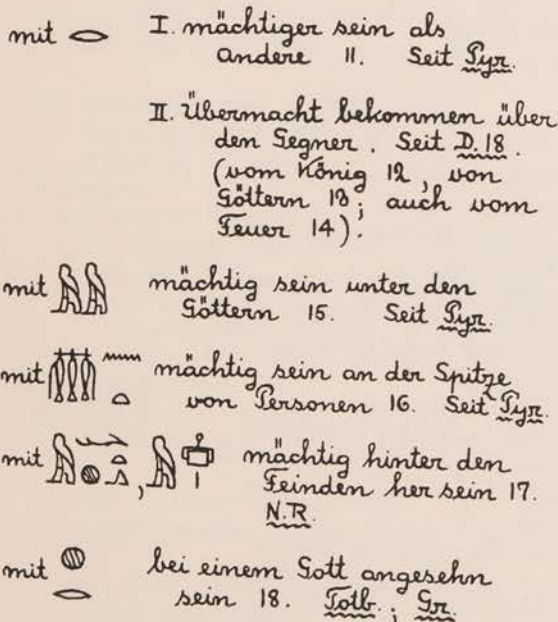 mit 𓂋 I. mächtiger sein als
andere 11. Seit Pyr.
II. Übermacht bekommen über
den Gegner. Seit D. 18.
(vom König 12, von
Göttern 13; auch vom
Feuer 14).
mit 𓅓𓅓 mächtig sein unter den
Göttern 15. Seit Pyr.
mit 𓏃𓈖𓏏 mächtig sein an der Spitze
von Personen 16. Seit Pyr.
mit , mächtig hinter den
Feinden her sein 17.
N.R.
mit 𓐍𓂋 bei einem Gott angesehn
sein 18. Totb.; Gr.